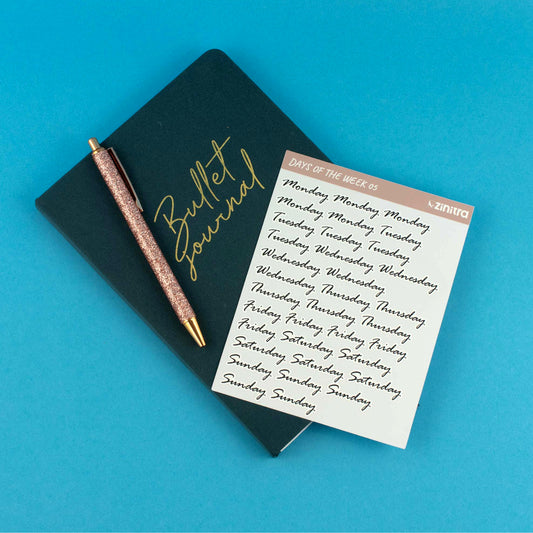 Bullet
Journal
DAYS OF THE WEEK 05
zinitra
Monday Monday Monday
Monday Monday Tuesday
Tuesday Tuesday Tuesday
Tuesday Wednesday Wednesday
Wednesday Wednesday
Wednesday Thursday Thursday
Thursday Thursday Thursday
Friday Friday Friday Friday
Friday Saturday Saturday
Saturday Saturday Saturday
Sunday Sunday Sunday
Sunday Sunday